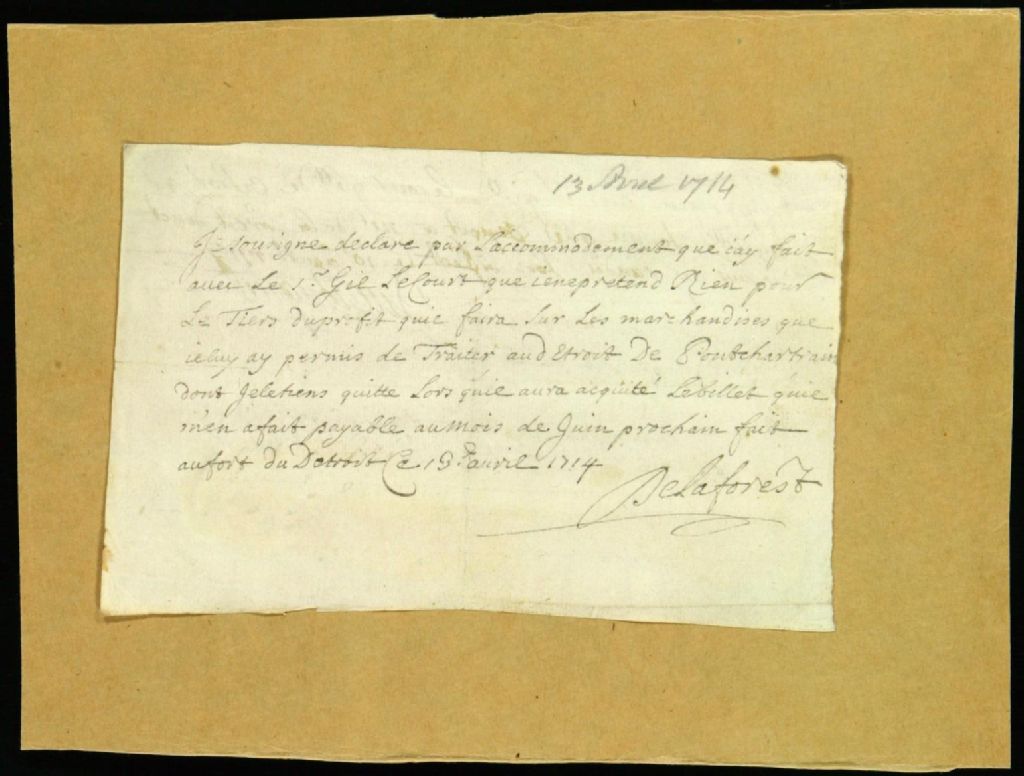 13 Avril 1714
Je sousigne declare par Laccommodement que iay fait
avec Le Sr. Gil LeCourt que ienepretend Rien pour
Le Tiers duprofit quie faira sur Les marchandises que
ieluy ay permis de Traiter audEtroit De Pontchartrain
dont Jeletiens quitte Lors quie aura acquité Lebillet quie
m'en afait payable aumois de Juin prochain fait
aufort duDetroit Ce 13e auril 1714
Delaforest